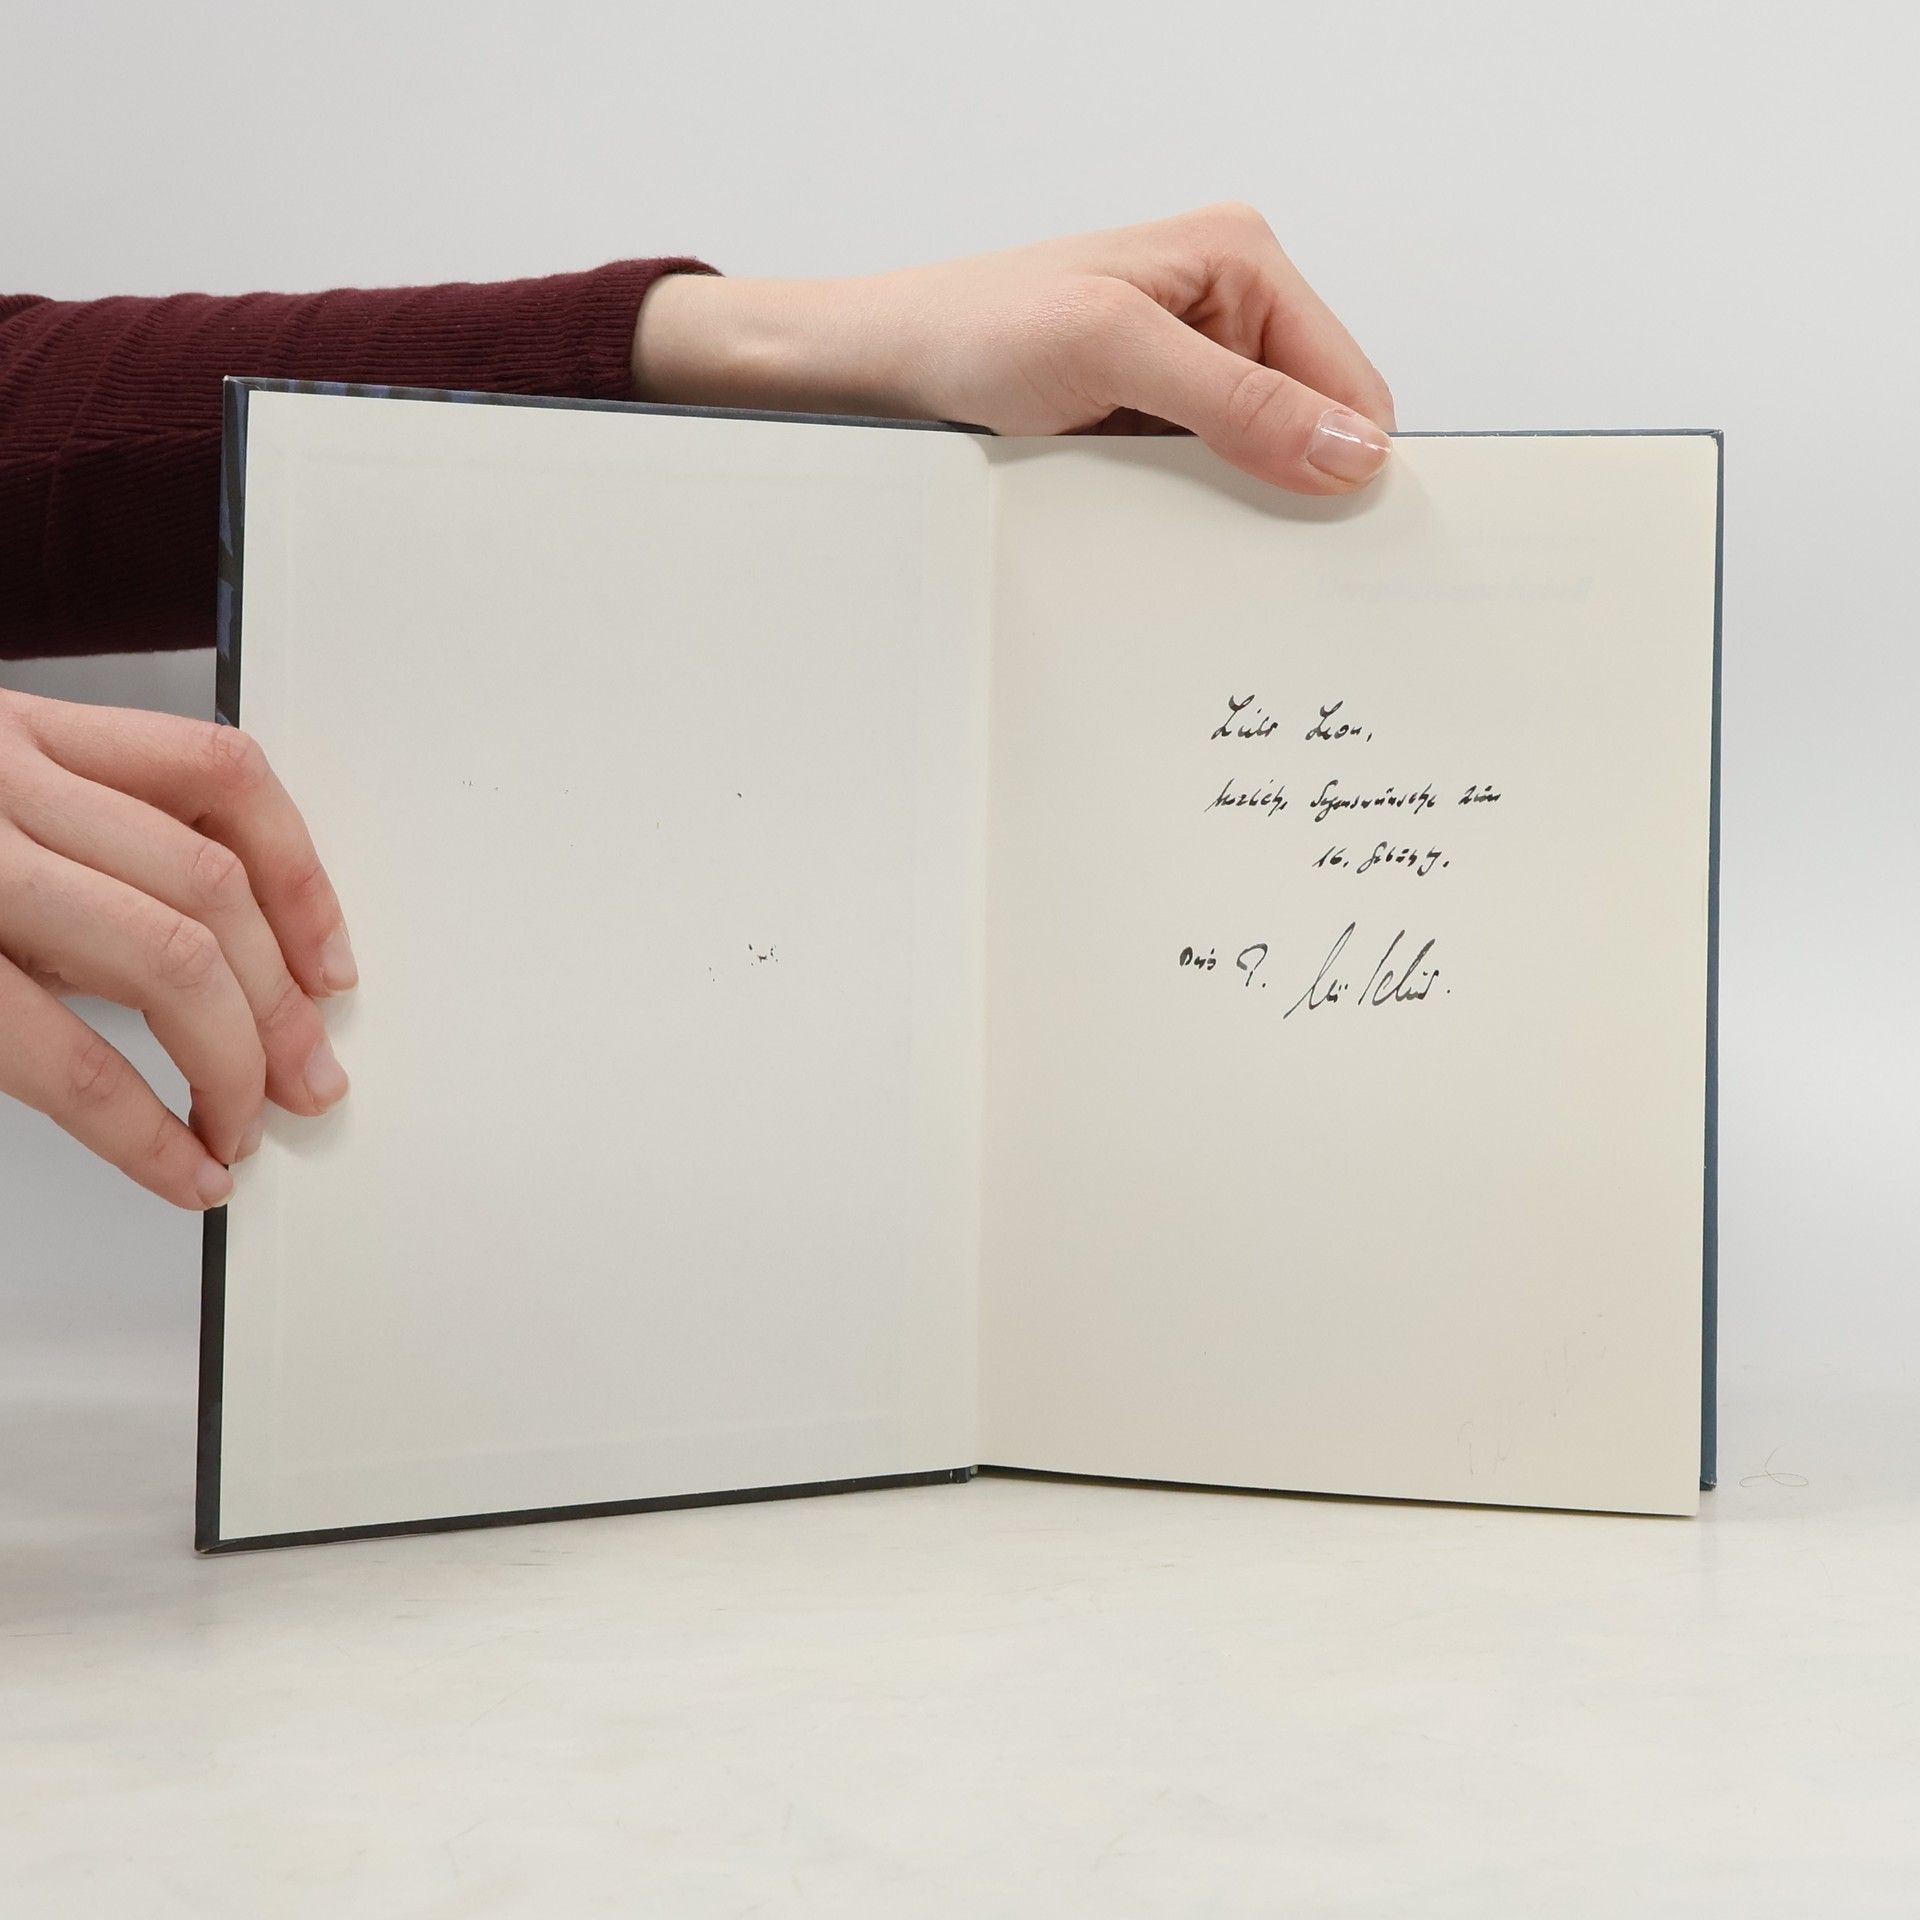 Lieber Leon,
herzliche Segenswünsche zum
16. Geburtstg.
Dein P.